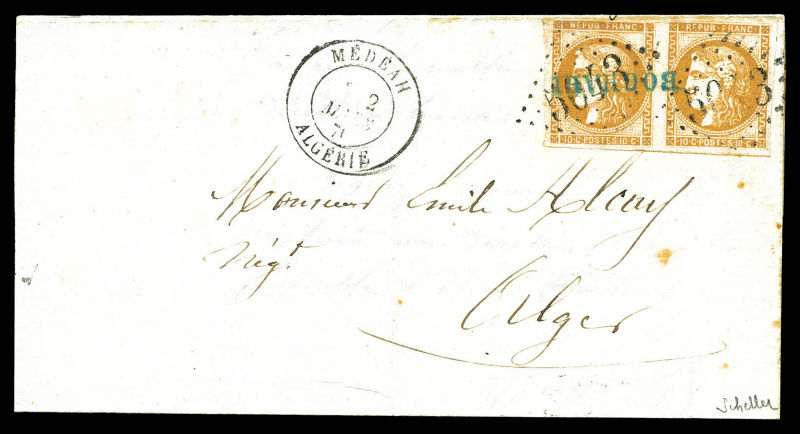 REPUB·FRANC·
REPUB·FRANC·
10·C·POSTES·10·C·
10·C·POSTES·10·C·
MÉDÉAH
2
71
ALGÉRIE
Monsieur Emile Alcay
Négt
Alger
Scheller